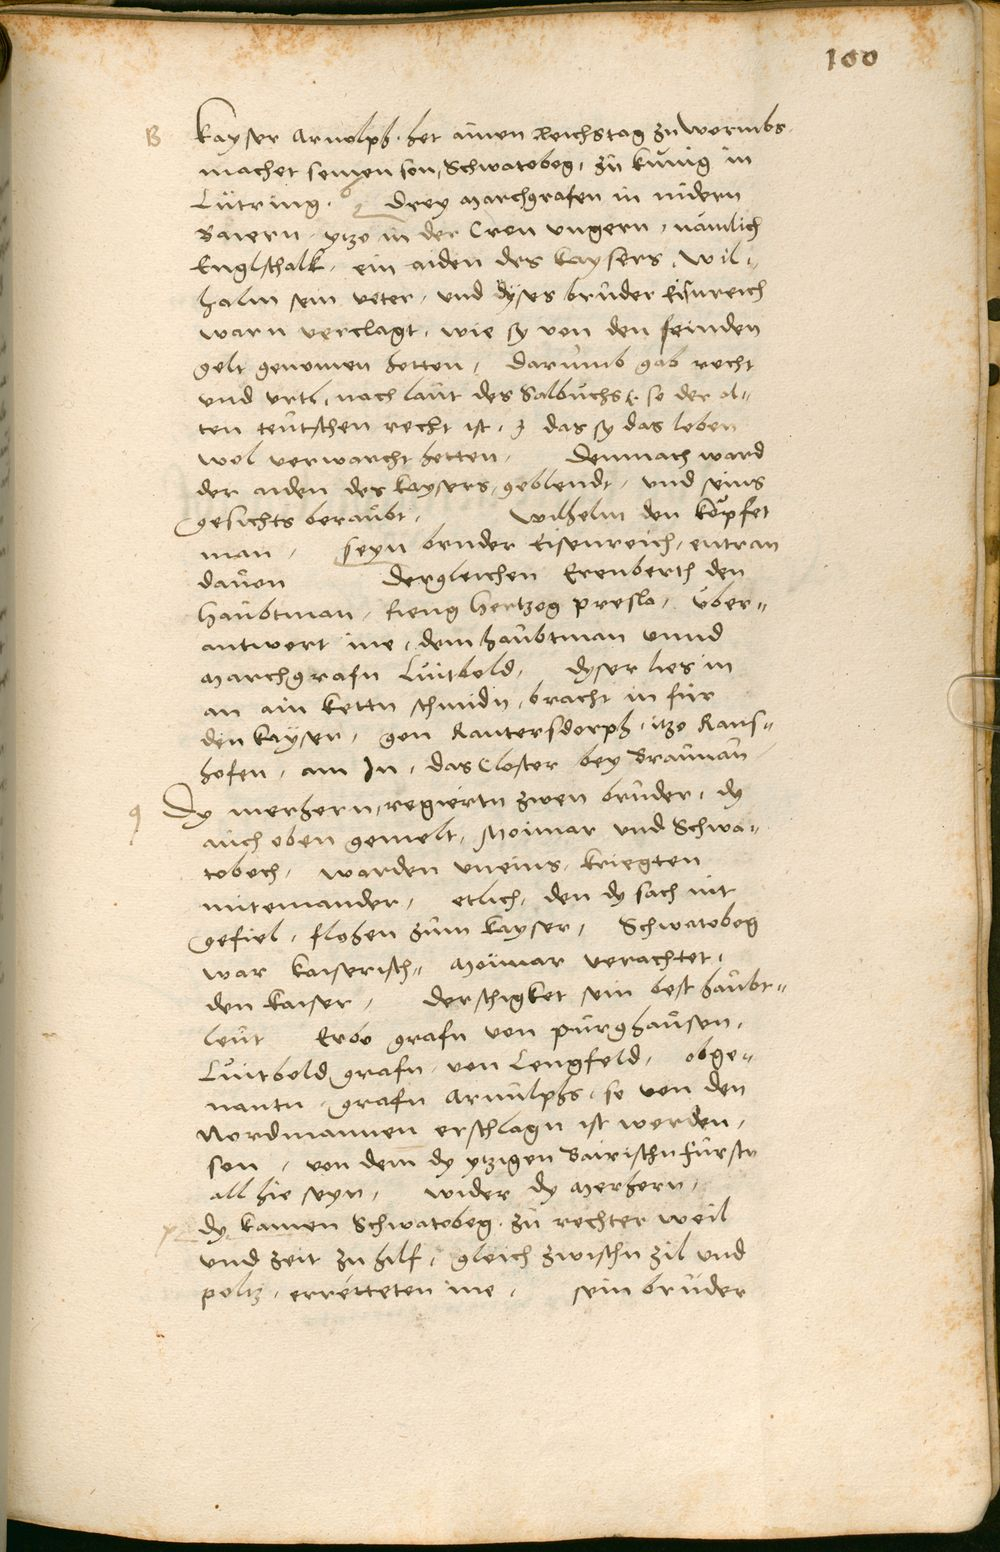 100
B kayser Arnolph. het ainen Reichstag zu Wormbs.
machet seinen son, Schwatobog, zu kunig in
Lütring. drey marchgrafen in nidern
Baiern. ytzo in der Cron ungern, nämlich
Englschalk. ein aiden des kaysers, wil-
halm sein veter, und dyses bruder
warn verclagt, wie sy von den feinden
gelt genomen hetten, darumb gab recht
und vrtl, nach laut des Salbuchs, so der al-
ten teutschen recht ist, das sy das leben
wol verwarcht hetten, demnach ward
der aiden des kaysers, geblendt, und seins
gesichts beraubt, wilhelm den köpfet
man, seyn bruder Eisenreich, entran
davon dergleichen Erenberth den
haubtman, fieng hertzog presla, über-
antwert ine, dem haubtman unnd
marchgrafn Luitbold, dyser lies in
an ain kettn schmidn, bracht in für
den kayser, gen Rantersdorph, itzo Rans-
hofen, am In, das Closter bey Braunau
g Dy merhern, regiertn zwen bruder, dy
auch oben gemelt, Moimar und Schwa-
toboch, warden uneins, kriegten
miteinander, etlich, den dy sach nit
gefiel, flohen zum kayser, Schwatobog
war kaiserisch, Moimar verachtet,
den kaiser, der schigket sein best haubt-
leut Erbo grafn von purghausen,
Luitbold grafn von Lengfeld, obge-
nantn grafn Arnulphs, so von den
Nordmannen erschlagn ist worden,
son, von dem dy ytzigen Bairischn fürstn
all hie seyn, wider dy merhern,
dy kamen Schwatobog, zu rechter weil
und zeit zu hilf, gleich zwischn zil und
poltz, erretteten ine, sein bruder